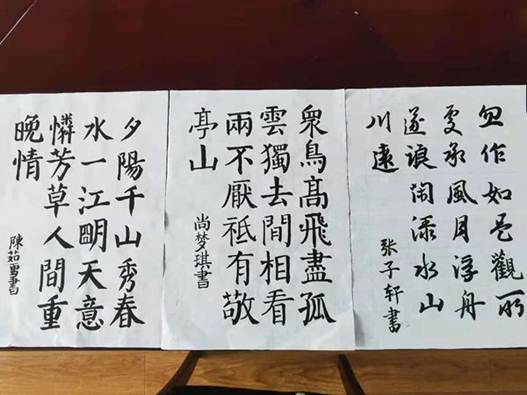 忽作如是觀所
更承風月浮舟
遂浪闲添水山
川遠
张子轩書
衆鳥髙飛盡孤
雲獨去間相看
兩不厭祗有敬
亭山
尚梦琪書
夕陽千山秀春
水一江朙天意
憐芳草人間重
晚情
陳茹雪書